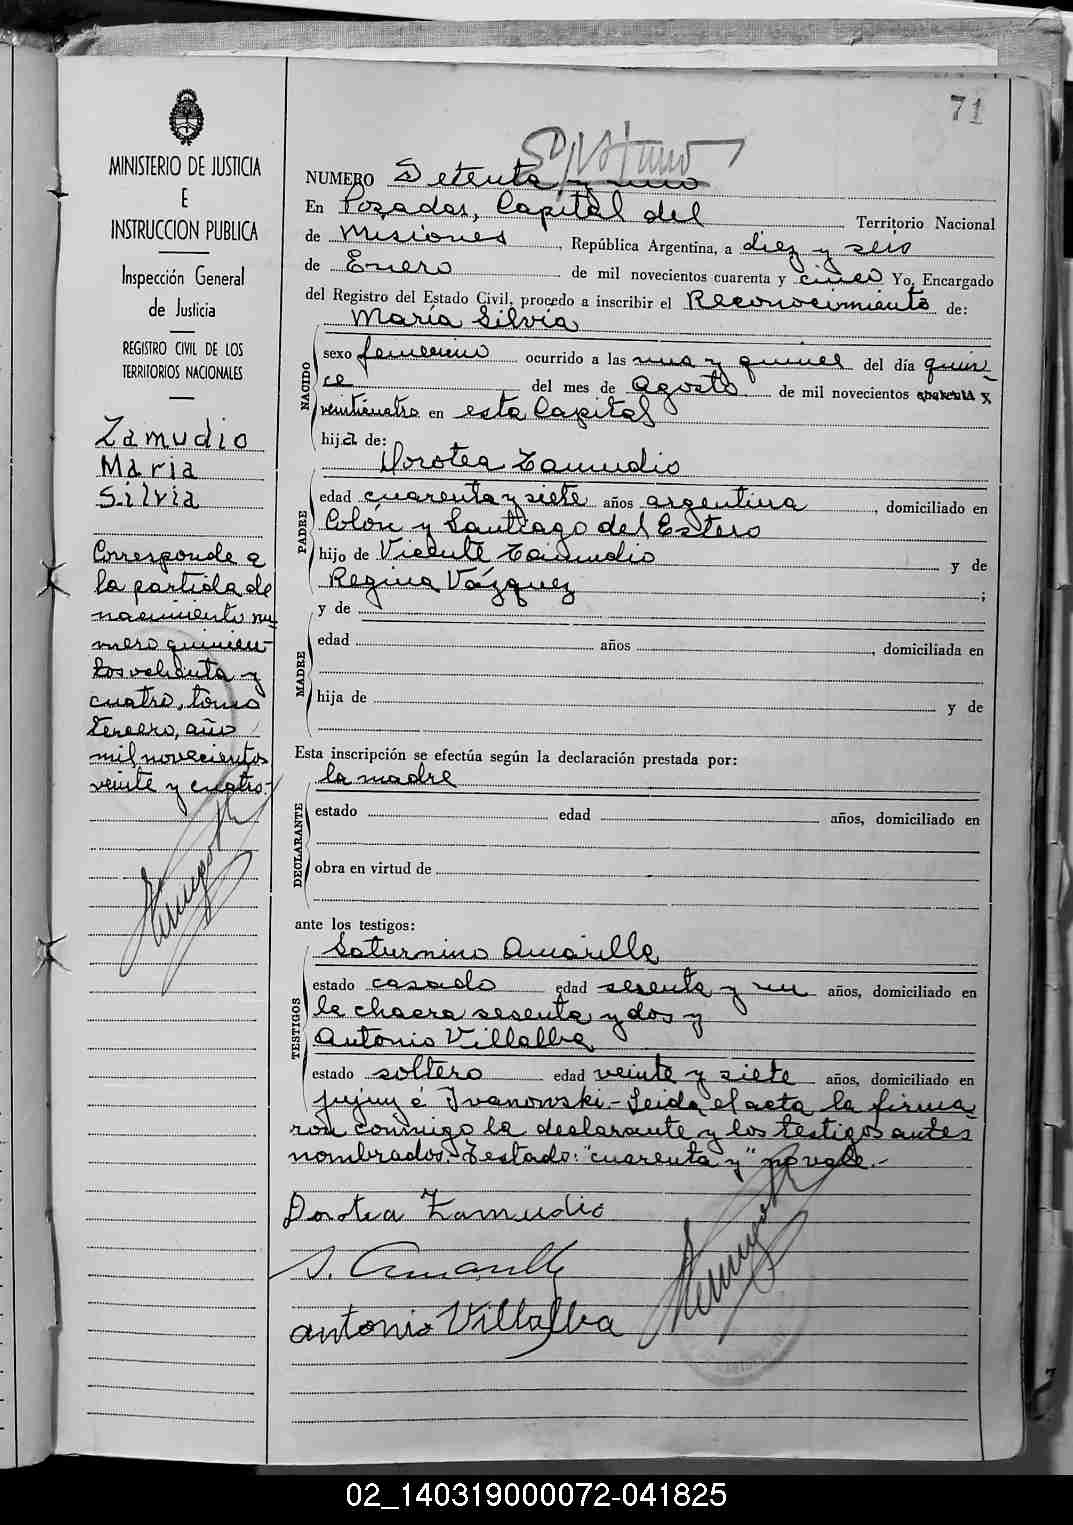 71
MINISTERIO DE JUSTICIA
E
INSTRUCCION PUBLICA
Inspección General
de Justicia
REGISTRO CIVIL DE LOS
TERRITORIOS NACIONALES
Zamudio
Maria
Silvia
Corresponde a
la partida de
nacimiento nu-
mero quinien-
tos ochenta y
cuatro, tomo
tercero, año
mil novecientos
veinte y cuatro.-
NUMERO Setenta y uno
En Posadas, Capital del Territorio Nacional
de Misiones, República Argentina, a diez y seis
de Enero de mil novecientos cuarenta y cinco Yo, Encargado
del Registro del Estado Civil, procedo a inscribir el Reconocimiento de:
María Silvia
NACIDO
sexo femenino ocurrido a las una y quince del día quin-
ce del mes de Agosto de mil novecientos cuarenta y
veinticuatro en esta Capital
hija de:
Dorotea Zamudio
PADRE
edad cuarenta y siete años argentina, domiciliado en
Colón y Santiago del Estero
hijo de Vicente Zamudio y de
Regina Vázquez ;
y de
MADRE
edad años , domiciliada en
hija de y de
Esta inscripción se efectúa según la declaración prestada por:
la madre
DECLARANTE
estado edad años, domiciliado en
obra en virtud de
ante los testigos:
Saturnino Amarilla
TESTIGOS
estado casado edad sesenta y un años, domiciliado en
la chacra sesenta y dos y
Antonio Villalba
estado soltero edad veinte y siete años, domiciliado en
jujuy é Ivanowski.- Leida el acta la firma-
ron conmigo la declarante y los testigos antes
nombrados. Testado: "cuarenta y" no vale.-
Dorotea Zamudio
S. Amarilla
Antonio Villalba
02_140319000072-041825